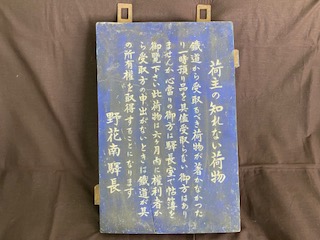 荷主の知れない荷物
鐵道から受取るべき荷物が著かなかつた
り一時預り品を其儘受取らない御方はあり
ませんか心當りの御方は驛長室で帖簿を
御覧下さい此荷物は六ケ月內に權利者か
ら受取方の申出がないときは鐵道が其
の所有權を取得することになります
野花南驛長